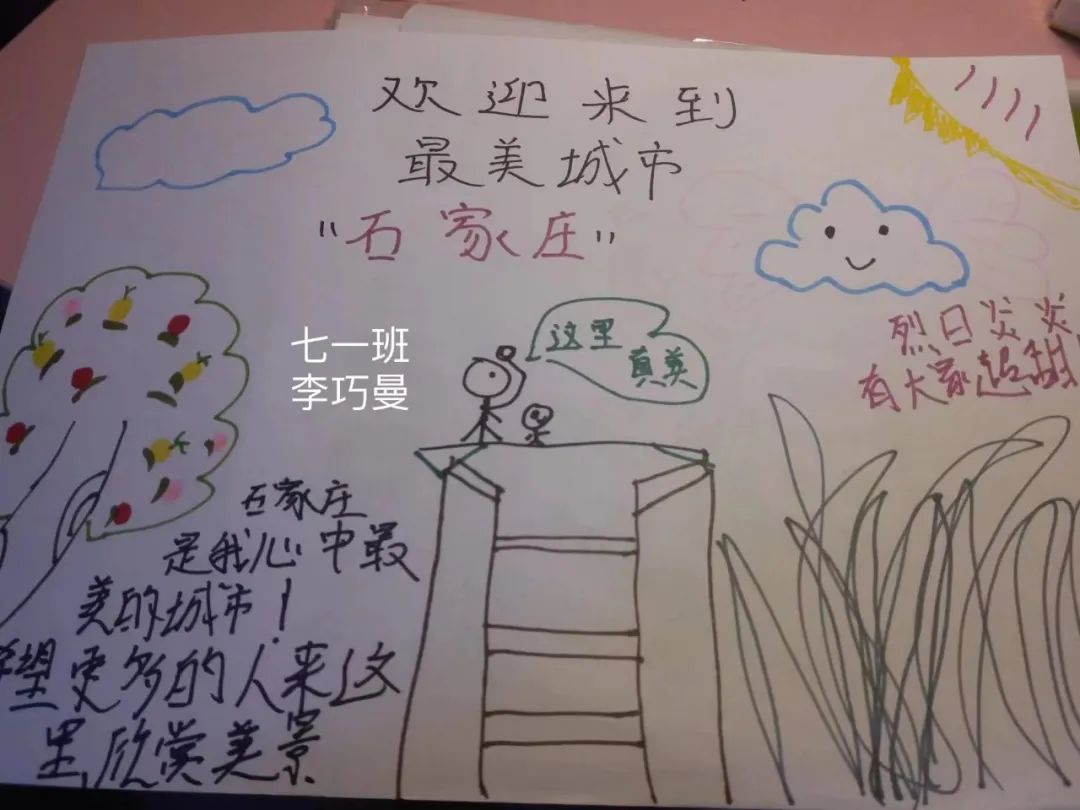 欢迎来到
最美城市
"石家庄"
这里
真美
烈日炎炎
有大家超甜
七一班
李巧曼
石家庄
是我心中最
美的城市！
希望更多的人来这
里欣赏美景